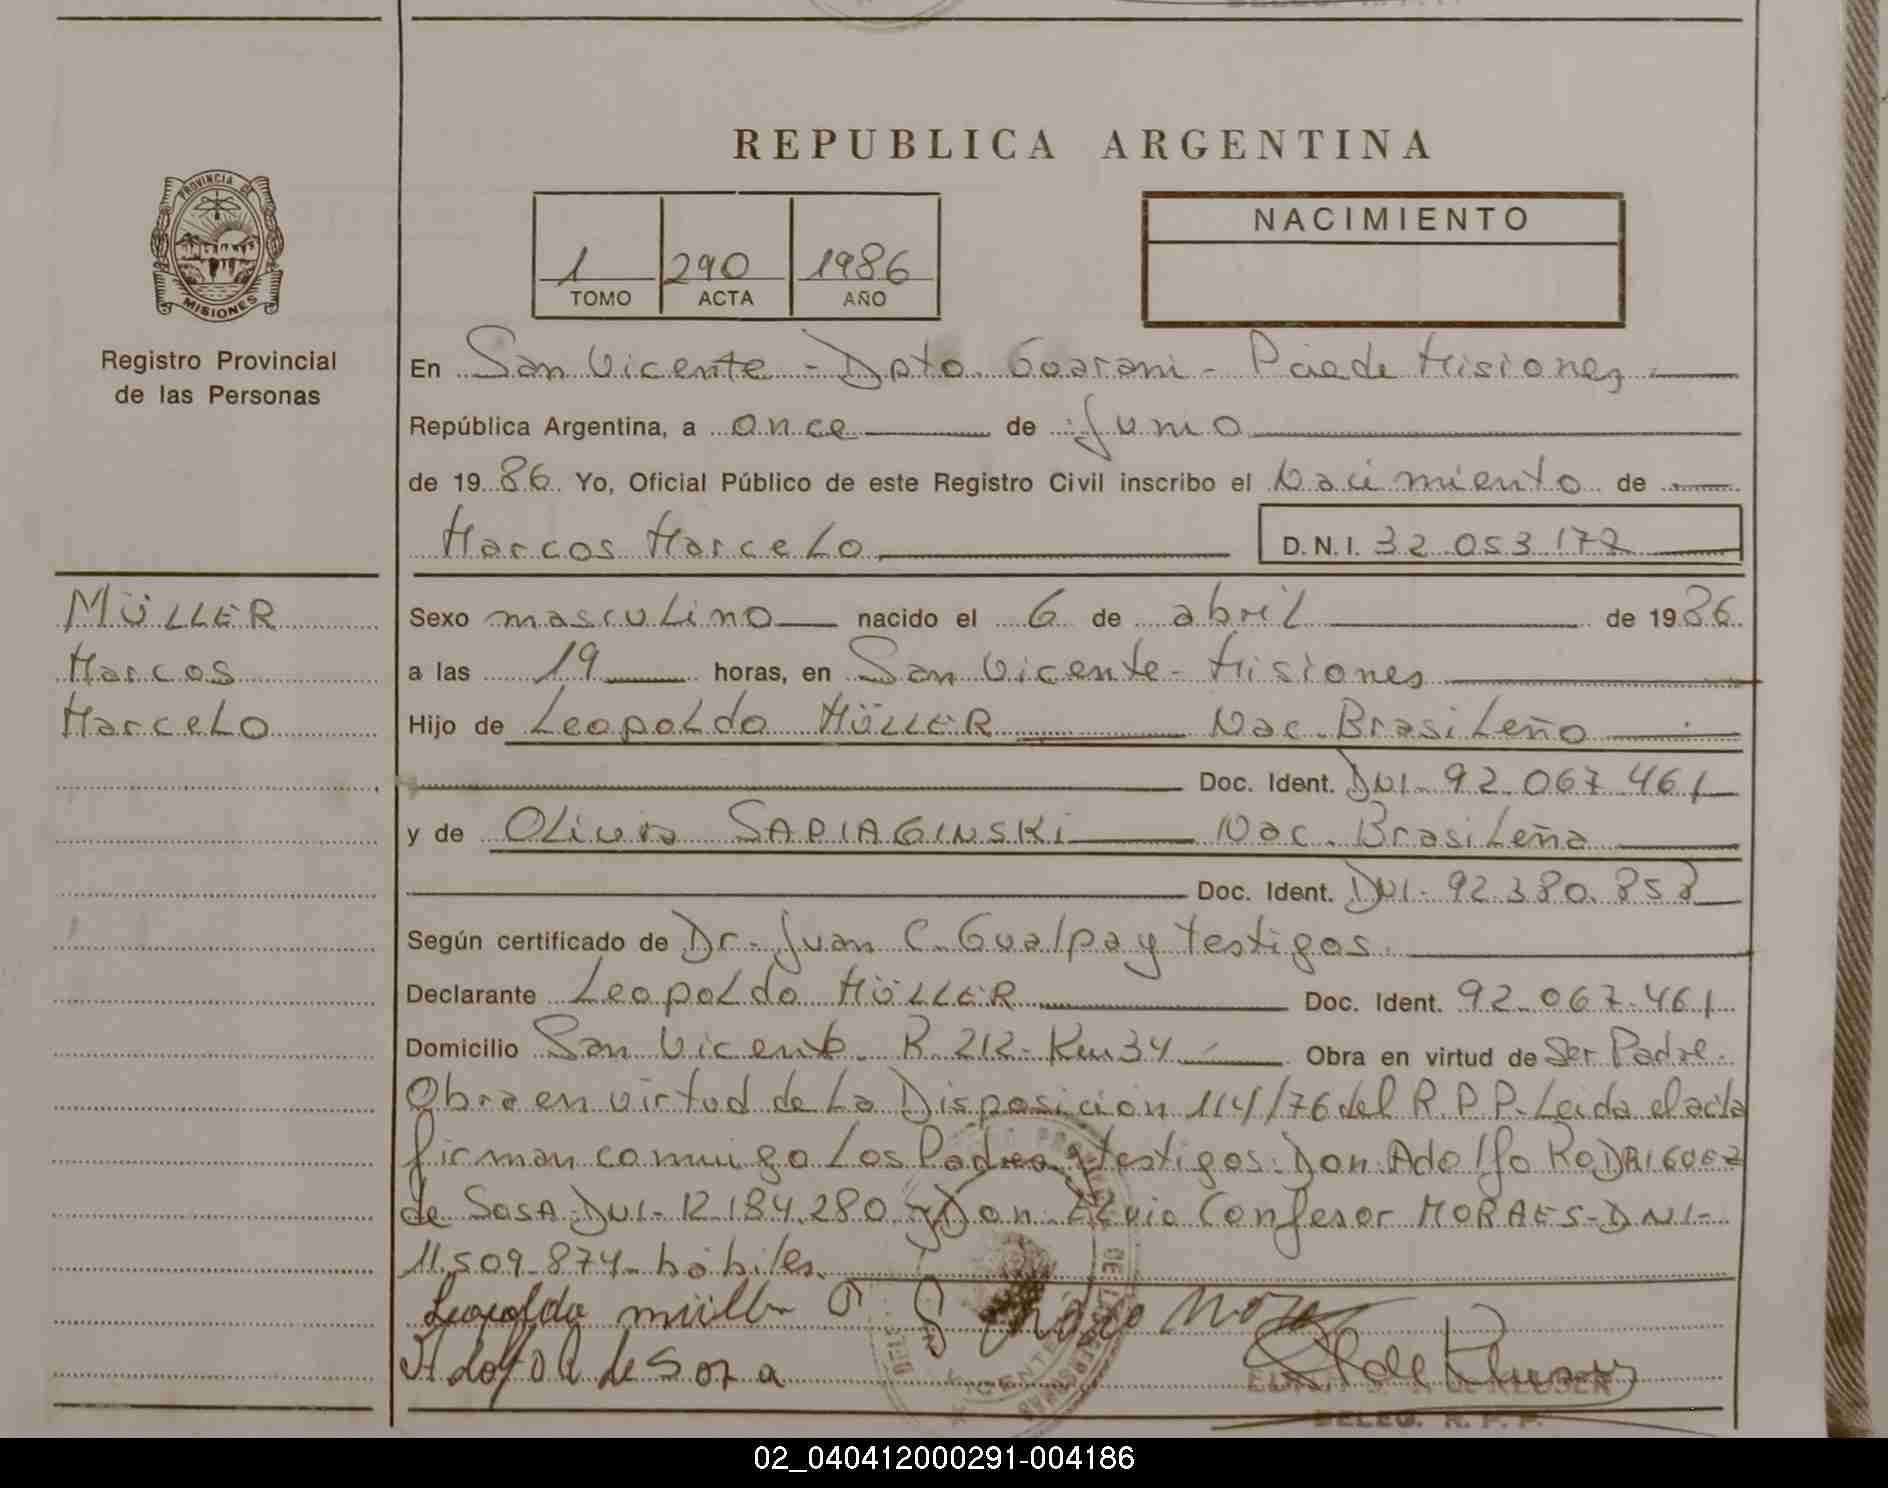 REPUBLICA ARGENTINA
PROVINCIA DE
MISIONES
Registro Provincial
de las Personas
1 290 1986
TOMO ACTA AÑO
NACIMIENTO
En San Vicente - Dpto. Guarani - Pcia de Misiones
República Argentina, a once de junio
de 1986 Yo, Oficial Público de este Registro Civil inscribo el Nacimiento de
Marcos Marcelo D.N.I. 32.053.172
MÜLLER
Marcos
Marcelo
Sexo masculino nacido el 6 de abril de 1986
a las 19 horas, en San Vicente - Misiones
Hijo de Leopoldo MÜLLER Nac. Brasileño
Doc. Ident. DNI - 92.067.461
y de Olivia SAPIAGINSKI Nac. Brasileña
Doc. Ident. DNI - 92.380.858
Según certificado de Dr. Juan C. Gualpa y testigos.
Declarante Leopoldo MÜLLER Doc. Ident. 92.067.461
Domicilio San Vicente R. 212 - Km 34 Obra en virtud de Ser Padre.
Obra en virtud de La Disposicion 114/76 del R.P.P. Leida el acta
firman conmigo Los Padres y testigos: Don Adolfo RODRIGUEZ
de SOSA DNI - 12.184.280 y Don Elvio Confesor MORAES - DNI -
11.509.874 - hábiles.
Leopoldo müller O S
Adolfo R de Soza
DELEG. R. P. P.
02_040412000291-004186